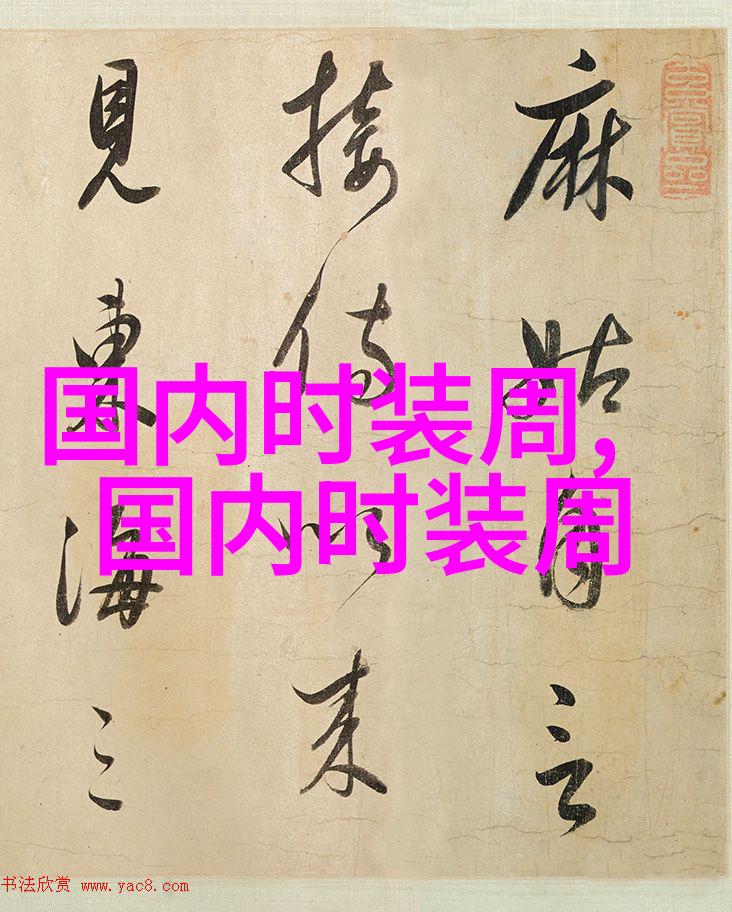 麻姑自言
接侍以来
見東海三
国内时装周,
国内时装周
书法欣赏 www.yac8.com